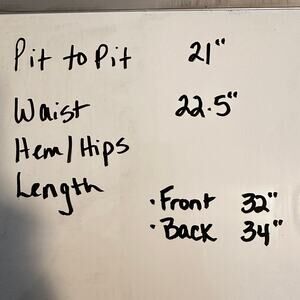 Pit to Pit 21"
Waist 22.5"
Hem/Hips
Length
·Front 32"
·Back 34"